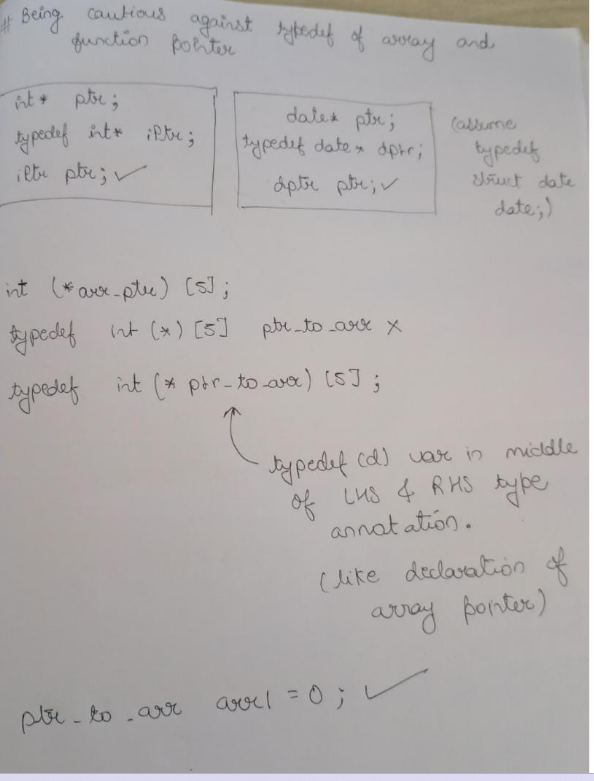 # Being cautious against typedef of array and
function pointer
int* ptr;
typedef int* iPtr;
iPtr ptr; ✓
date* ptr;
typedef date* dptr;
dptr ptr; ✓
(assume
typedef
struct date
date;)
int (*arr_ptr) [5];
typedef int (*) [5] ptr_to_arr ×
typedef int (* ptr_to_arr) [5];
typedef(d) var in middle
of LHS & RHS type
annotation.
(like declaration of
array pointer)
ptr_to_arr arr1 = 0; ✓